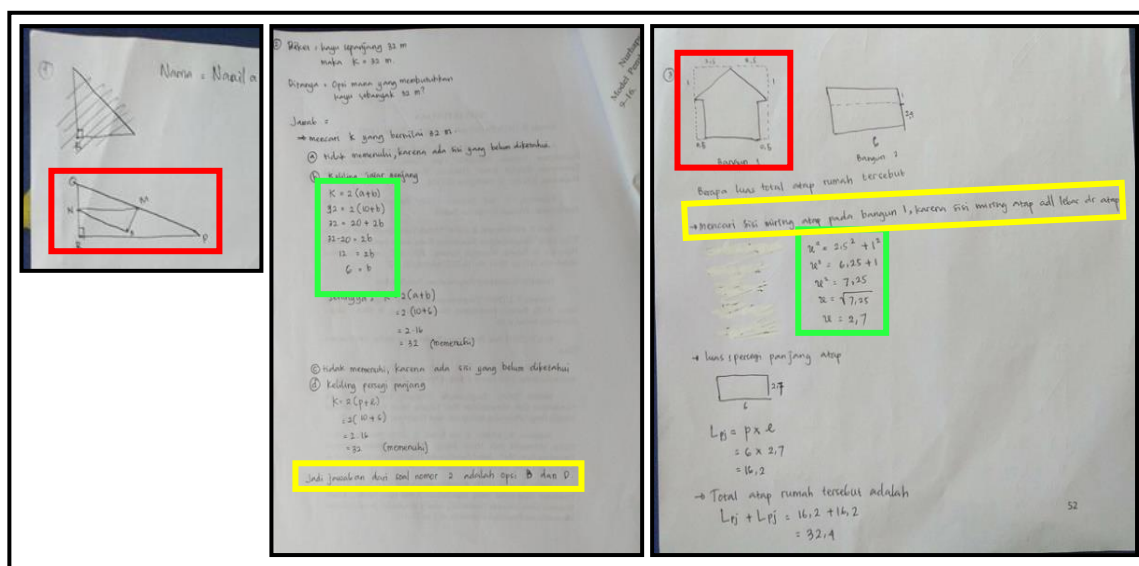 ①
Nama = Naail a
R
Q
N
M
S
R
P
② Diket : kayu sepanjang 32 m
maka K = 32 m.
Ditanya = Opsi mana yang membutuhkan
kayu sebanyak 32 m?
Jawab =
→ mencari K yang bernilai 32 m
ⓐ tidak memenuhi, karena ada sisi yang belum diketahui
ⓑ Keliling jajar genjang
K = 2(a+b)
32 = 2(10+b)
32 = 20 + 2b
32-20 = 2b
12 = 2b
6 = b
Sehingga = K = 2(a+b)
= 2 (10+6)
= 2·16
= 32 (memenuhi)
ⓒ tidak memenuhi, karena ada sisi yang belum diketahui
ⓓ Keliling persegi panjang
K = 2(p+l)
= 2(10+6)
= 2·16
= 32 (memenuhi)
Jadi jawaban dari soal nomor 2 adalah opsi B dan D
Model
9-16.
③
2,5 2,5
1
0,5 0,5
Bangun 1
1
2,5
6
Bangun 2
Berapa luas total atap rumah tersebut
→ mencari sisi miring atap pada bangun 1, karena sisi miring atap adl lebar dr atap
x² = 2,5² + 1²
x² = 6,25 + 1
x² = 7,25
x = √7,25
x = 2,7
→ luas persegi panjang atap
2,7
6
Lpj = p x l
= 6 x 2,7
= 16,2
→ Total atap rumah tersebut adalah
Lpj + Lpj = 16,2 + 16,2
= 32,4
52